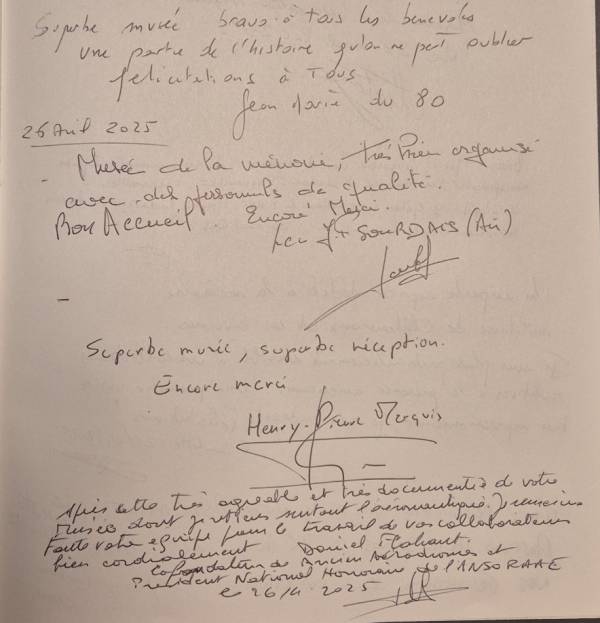 Superbe musée bravo à tous les benevoles
une partie de l'histoire qu'on ne peut oublier
felicitations à Tous
Jean Marie du 80
26 Avril 2025
- Musée de la mémoire, très bien organisé
avec des personnels de qualité.
Bon Accueil. Encore Merci.
SOURDAIS (Air)
Superbe musée, superbe réception.
Encore merci
Henry-Pierre Marquis
Après cette très agréable et très documentée de votre
Musée dont je retiens surtout l'aéronautique. Je remercie
toute votre équipe pour le travail de vos collaborateurs
bien cordialement Daniel
Cofondateur de Anciens Aérodromes et
Président National Honoraire de l'ANSORAAE
le 26/4 2025